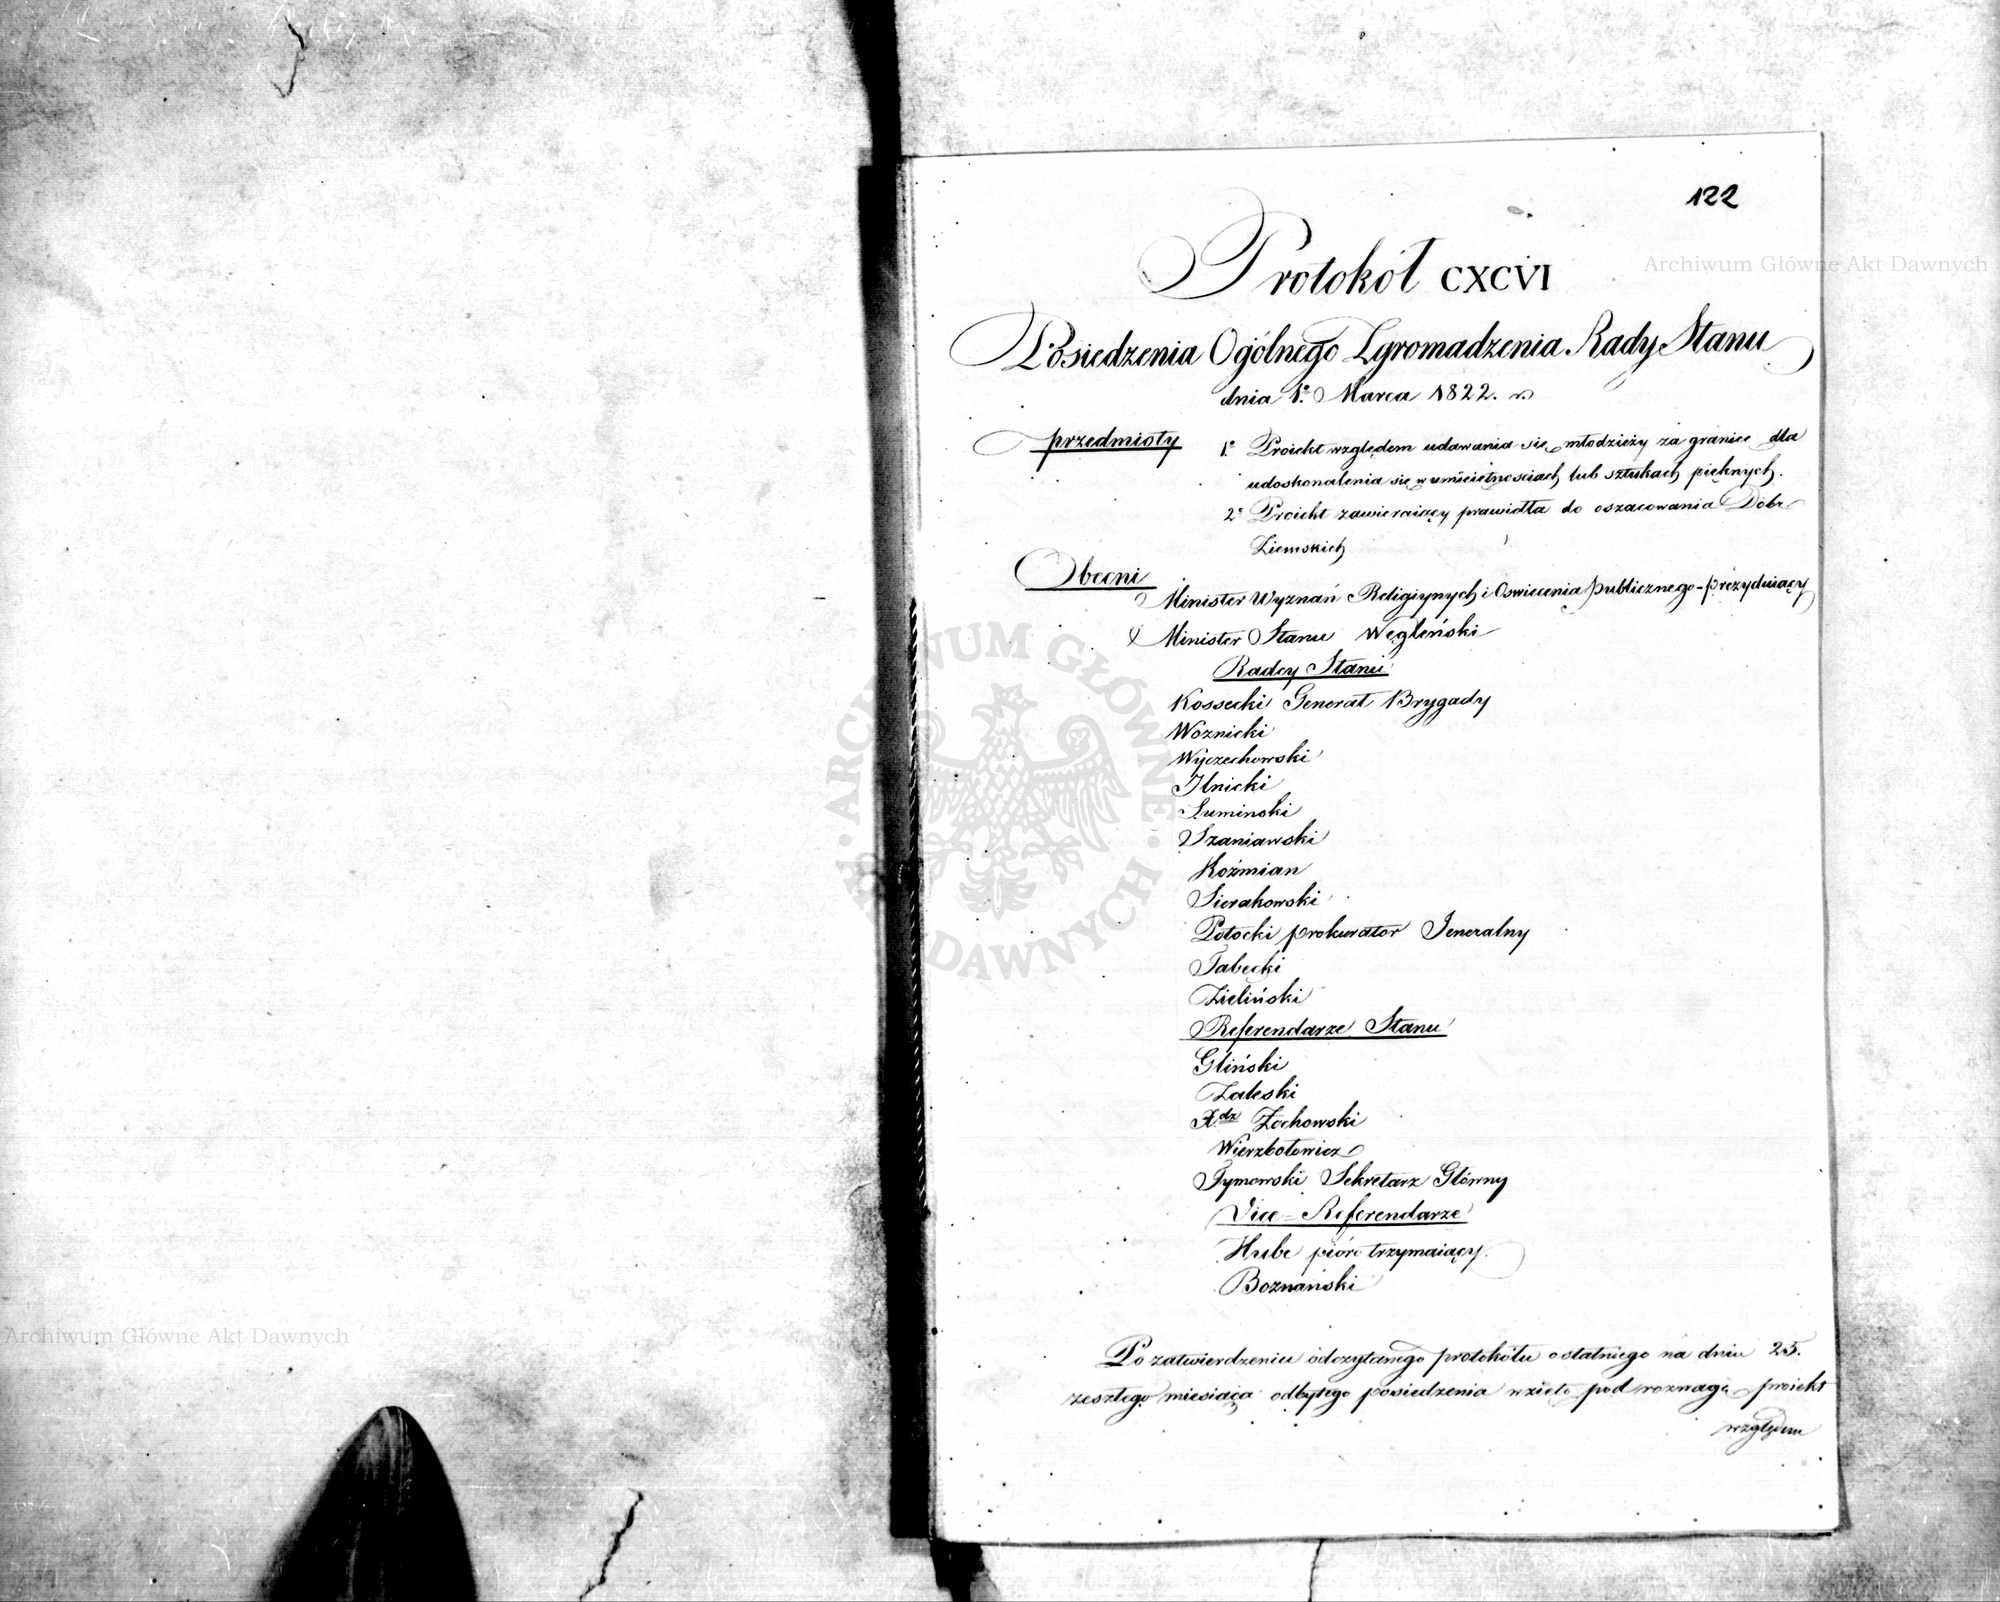 122
Protokół CXCVI
Posiedzenia Ogólnego Zgromadzenia Rady Stanu
dnia 1º. Marca 1822. r.
przedmioty
1º Proiekt względem udawania się młodzieży za granicę dla
udoskonalenia się w umieiętnosciach lub sztukach pięknych.
2º Proiekt zawieraiący prawidła do oszacowania Dóbr
Ziemskich
Obecni
Minister Wyznań Religiynych i Oswiecenia publicznego - prezyduiący
Minister Stanu Węgleński
Radcy Stanu
Kossecki Generał Brygady
Woznicki
Wyczechowski
Ilnicki
Suminski
Szaniawski
Koźmian
Sierakowski
Potocki prokurator Jeneralny
Tabęcki
Zieliński
Referendarze Stanu
Gliński
Zaleski
X.dz Zochowski
Wierzbołowicz
Tymowski Sekretarz Główny
Vice-Referendarze
Hube pióro trzymaiący.
Boznański
Po zatwierdzeniu odczytanego protokółu ostatniego na dniu 25.
zeszłego miesiąca odbytego posiedzenia wzięto pod rozwagę proiekt
względem
Archiwum Główne Akt Dawnych
ARCHIWUM GŁÓWNE AKT DAWNYCH
Archiwum Główne Akt Dawnych